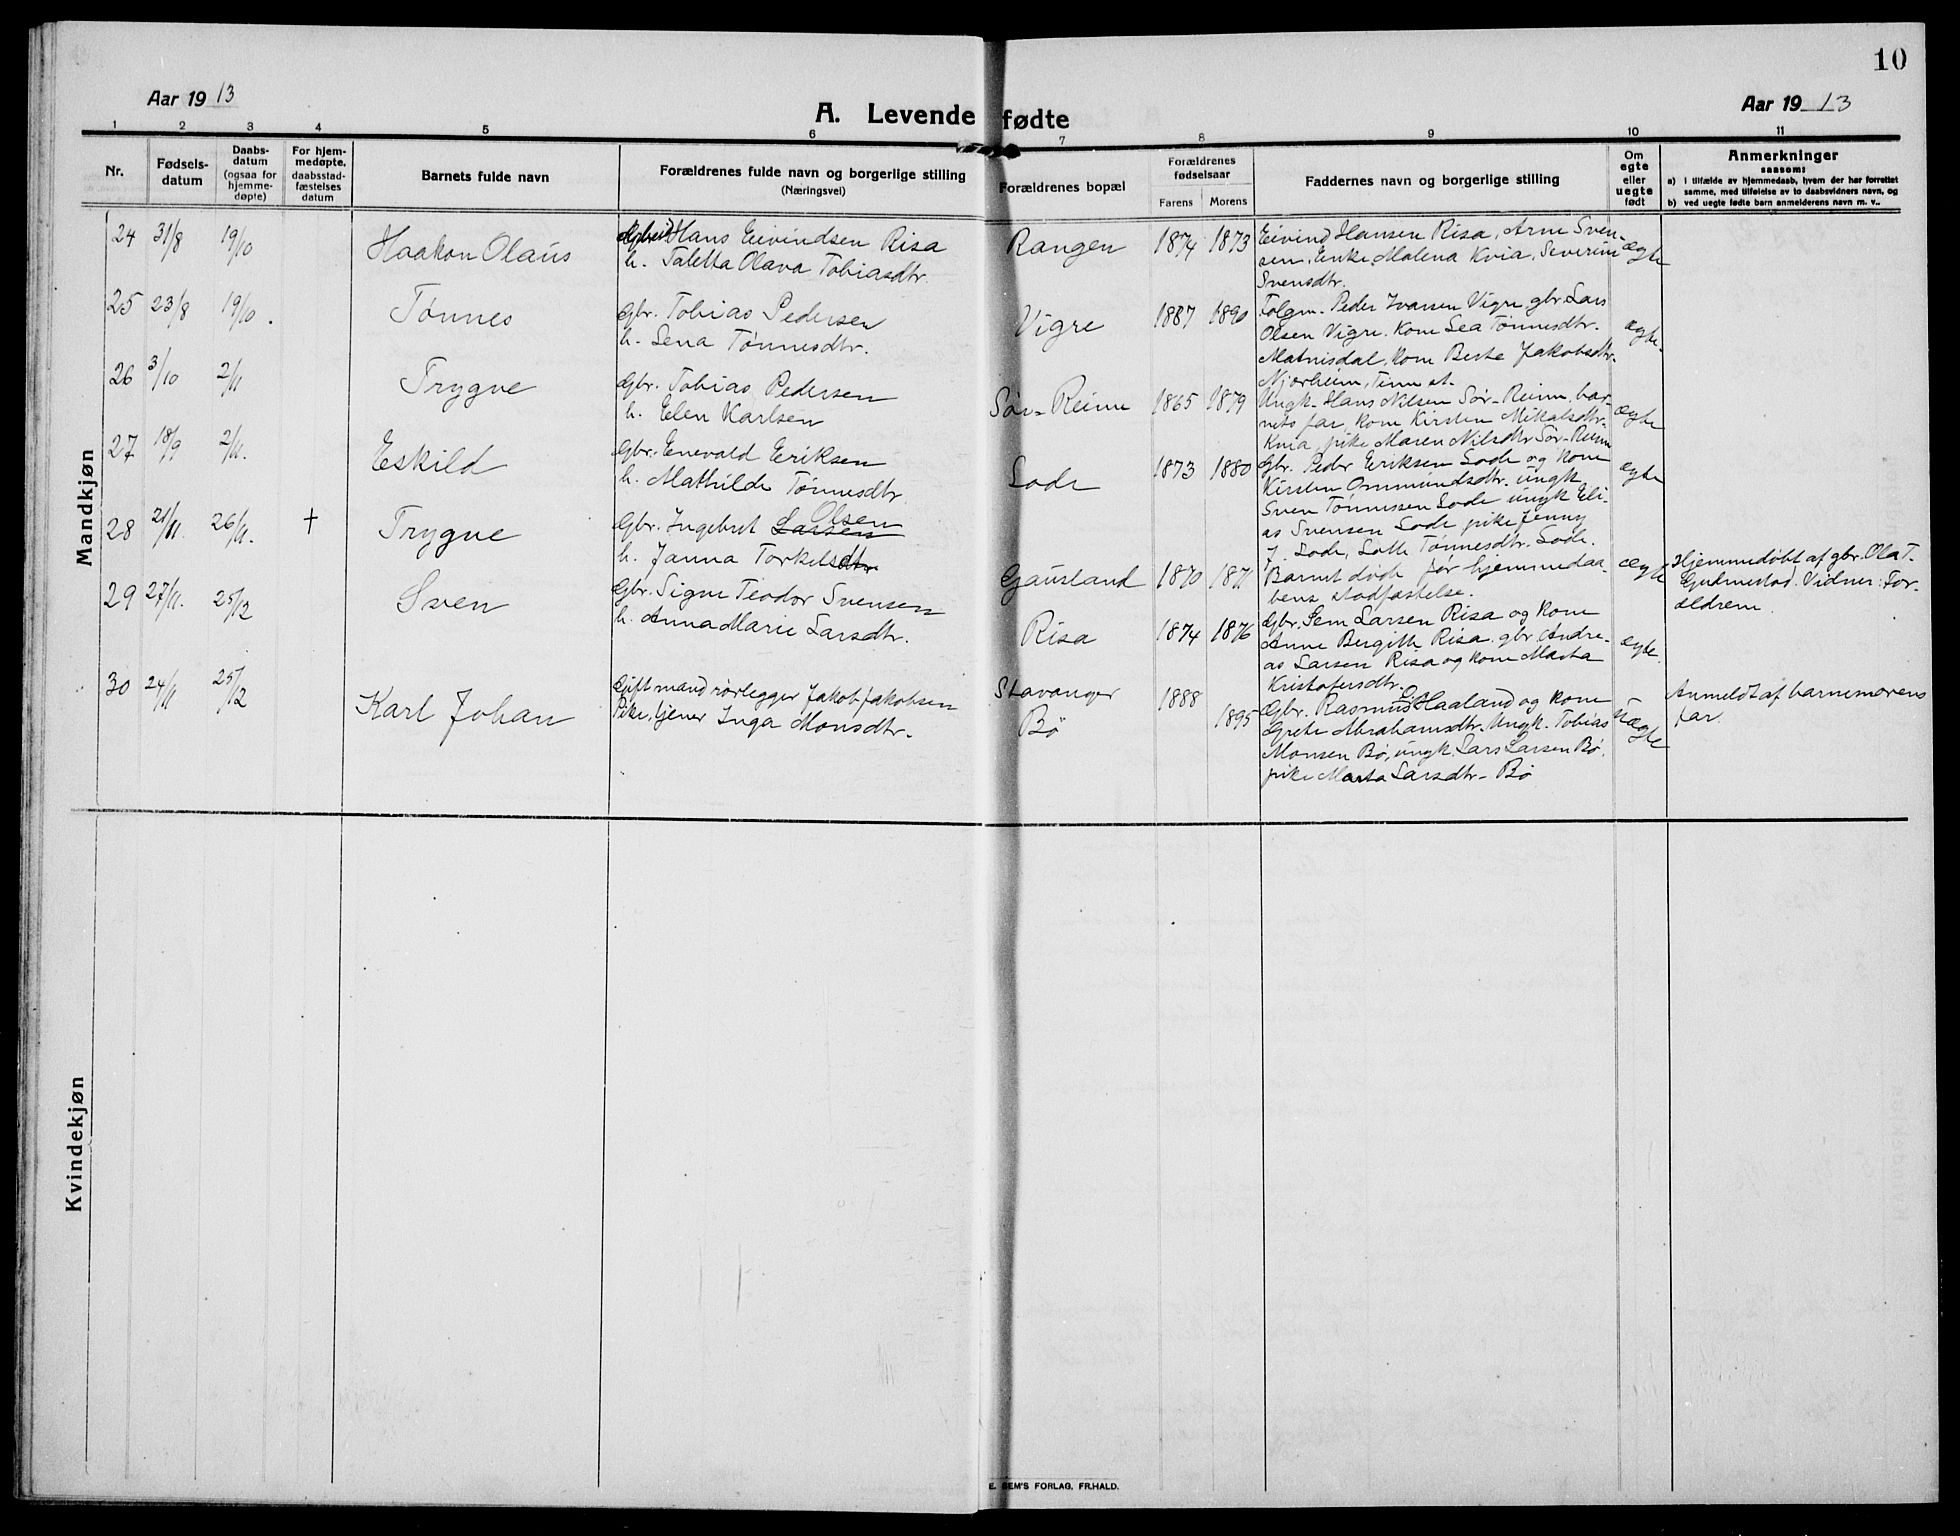 10
Aar 19 13
A. Levende fødte
Aar 19 13
1 2 3 4 5 6 7 8 9 10 11
Nr.
Fødsels-
datum
Daabs-
datum
(ogsaa for
hjemme-
døpte)
For hjem-
medøpte,
daabsstad-
fæstelses
datum
Barnets fulde navn
Forældrenes fulde navn og borgerlige stilling
(Næringsvei)
Forældrenes bopæl
Forældrenes
fødselsaar
Farens Morens
Faddernes navn og borgerlige stilling
Om
egte
eller
uegte
født
Anmerkninger
saasom:
a) i tilfælde av hjemmedaab, hvem der har forrettet
samme, med tilføielse av to daabsvidners navn, og
b) ved uegte fødte barn anmelderens navn m. v..
Mandkjøn
24 31/8 19/10 Haakon Olaus
Arbeid Hans Eivindsen Risa
h. Taletta Olava Tobiasdtr.
Rangen 1874 1873
Eivind Hansen Risa, Arne Sven-
sen, Enke Malena Kvia, Severine
Svensdtr.
ægte
25 23/8 19/10. Tønnes
Gbr. Tobias Pedersen
h. Lena Tønnesdtr.
Vigre 1887 1890
Folgm. Peder Ivarsen Vigre, gbr. Lars
Olsen Vigre. Kone Lea Tønnesdtr.
Matnisdal, kone Berte Jakobsdtr.
Njærheim, Tine st.
ægte.
26 3/10 2/11 Trygve
Gbr. Tobias Pedersen
h. Elen Karlsen
Sør-Reime 1865 1879
Ungk. Hans Nilsen Sør-Reime, bar-
nets far, kone Kirsten Mikalsdtr.
Kvia, pike Maren Nilsdtr Sør-Reime
ægte
27 18/9 2/11. Eskild
Gbr. Enevald Eriksen
h. Mathilde Tønnesdtr.
Lode 1873 1880
Gbr. Peder Eriksen Lode og kone
Kirsten Ommundsdtr. ungk
Sven Tønnessen Lode ungk Eli-
as Svensen Lode pike Jenny
J. Lode, Lotte Tønnesdtr. Lode.
ægte
28 21/11. 26/11. † Trygve
Gbr. Ingebret Larsen Olsen
h. Janna Torkelsdtr
Gausland 1870 1871
Barnet døde før hjemmedaa-
bens stadfæstelse.
ægte
Hjemmedøbt af gbr. Ola T.
Gudmestad. Vidner: For-
ældrene.
29 27/11. 25/12 Sven
Gbr. Signe Teodor Svensen
h. Anna Marie Larsdtr.
Risa 1874 1876
Gbr. Sem Larsen Risa og kone
Anne Bergitte Risa. gbr. Andre-
as Larsen Risa og kone Marta
Kristofersdtr.
ægte.
30 24/11 25/12 Karl Johan
Gift mand rørlegger Jakob Jakobsen
Pike, tjener Inga Monsdtr.
Stavanger
Bø
1888
1895
Gbr. Rasmus Haaland og kone
Grete Abrahamsdtr. Ungk. Tobias
Monsen Bø, ungk. Lars Larsen Bø,
pike Marta Larsdtr. Bø
Uægte
Anmeldt af barnemorens
far.
Kvindekjøn
E. SEM'S FORLAG, FR.HALD.